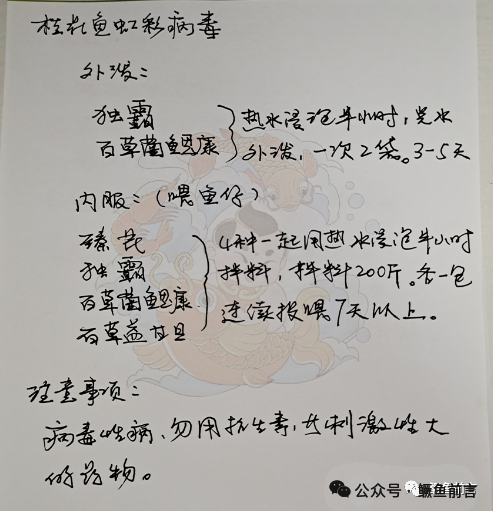 桂花鱼虹彩病毒
外泼：
独霸
百草菌鳃康
热水浸泡半小时，兑水
外泼，一次2袋。3-5天
内服：（喂鱼仔）
臻花
独霸
百草菌鳃康
百草益甘旦
4种一起用热水浸泡半小时
拌料，拌料200斤。各一包
连续投喂7天以上。
注意事项：
病毒性病，勿用抗生素，与刺激性大
的药物。
公众号·鳜鱼前言